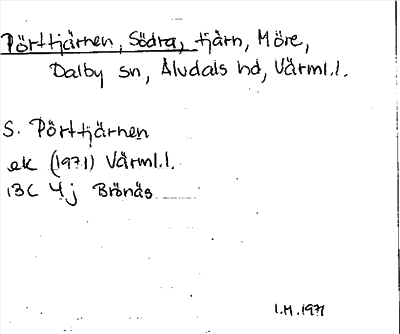 Pörttjärnen, Södra, tjärn, Möre,
Dalby sn, Älvdals hd, Värml.l.
S. Pörttjärnen
ek (1971) Värml.l.
13C 4j Brönäs
I.H. 1977